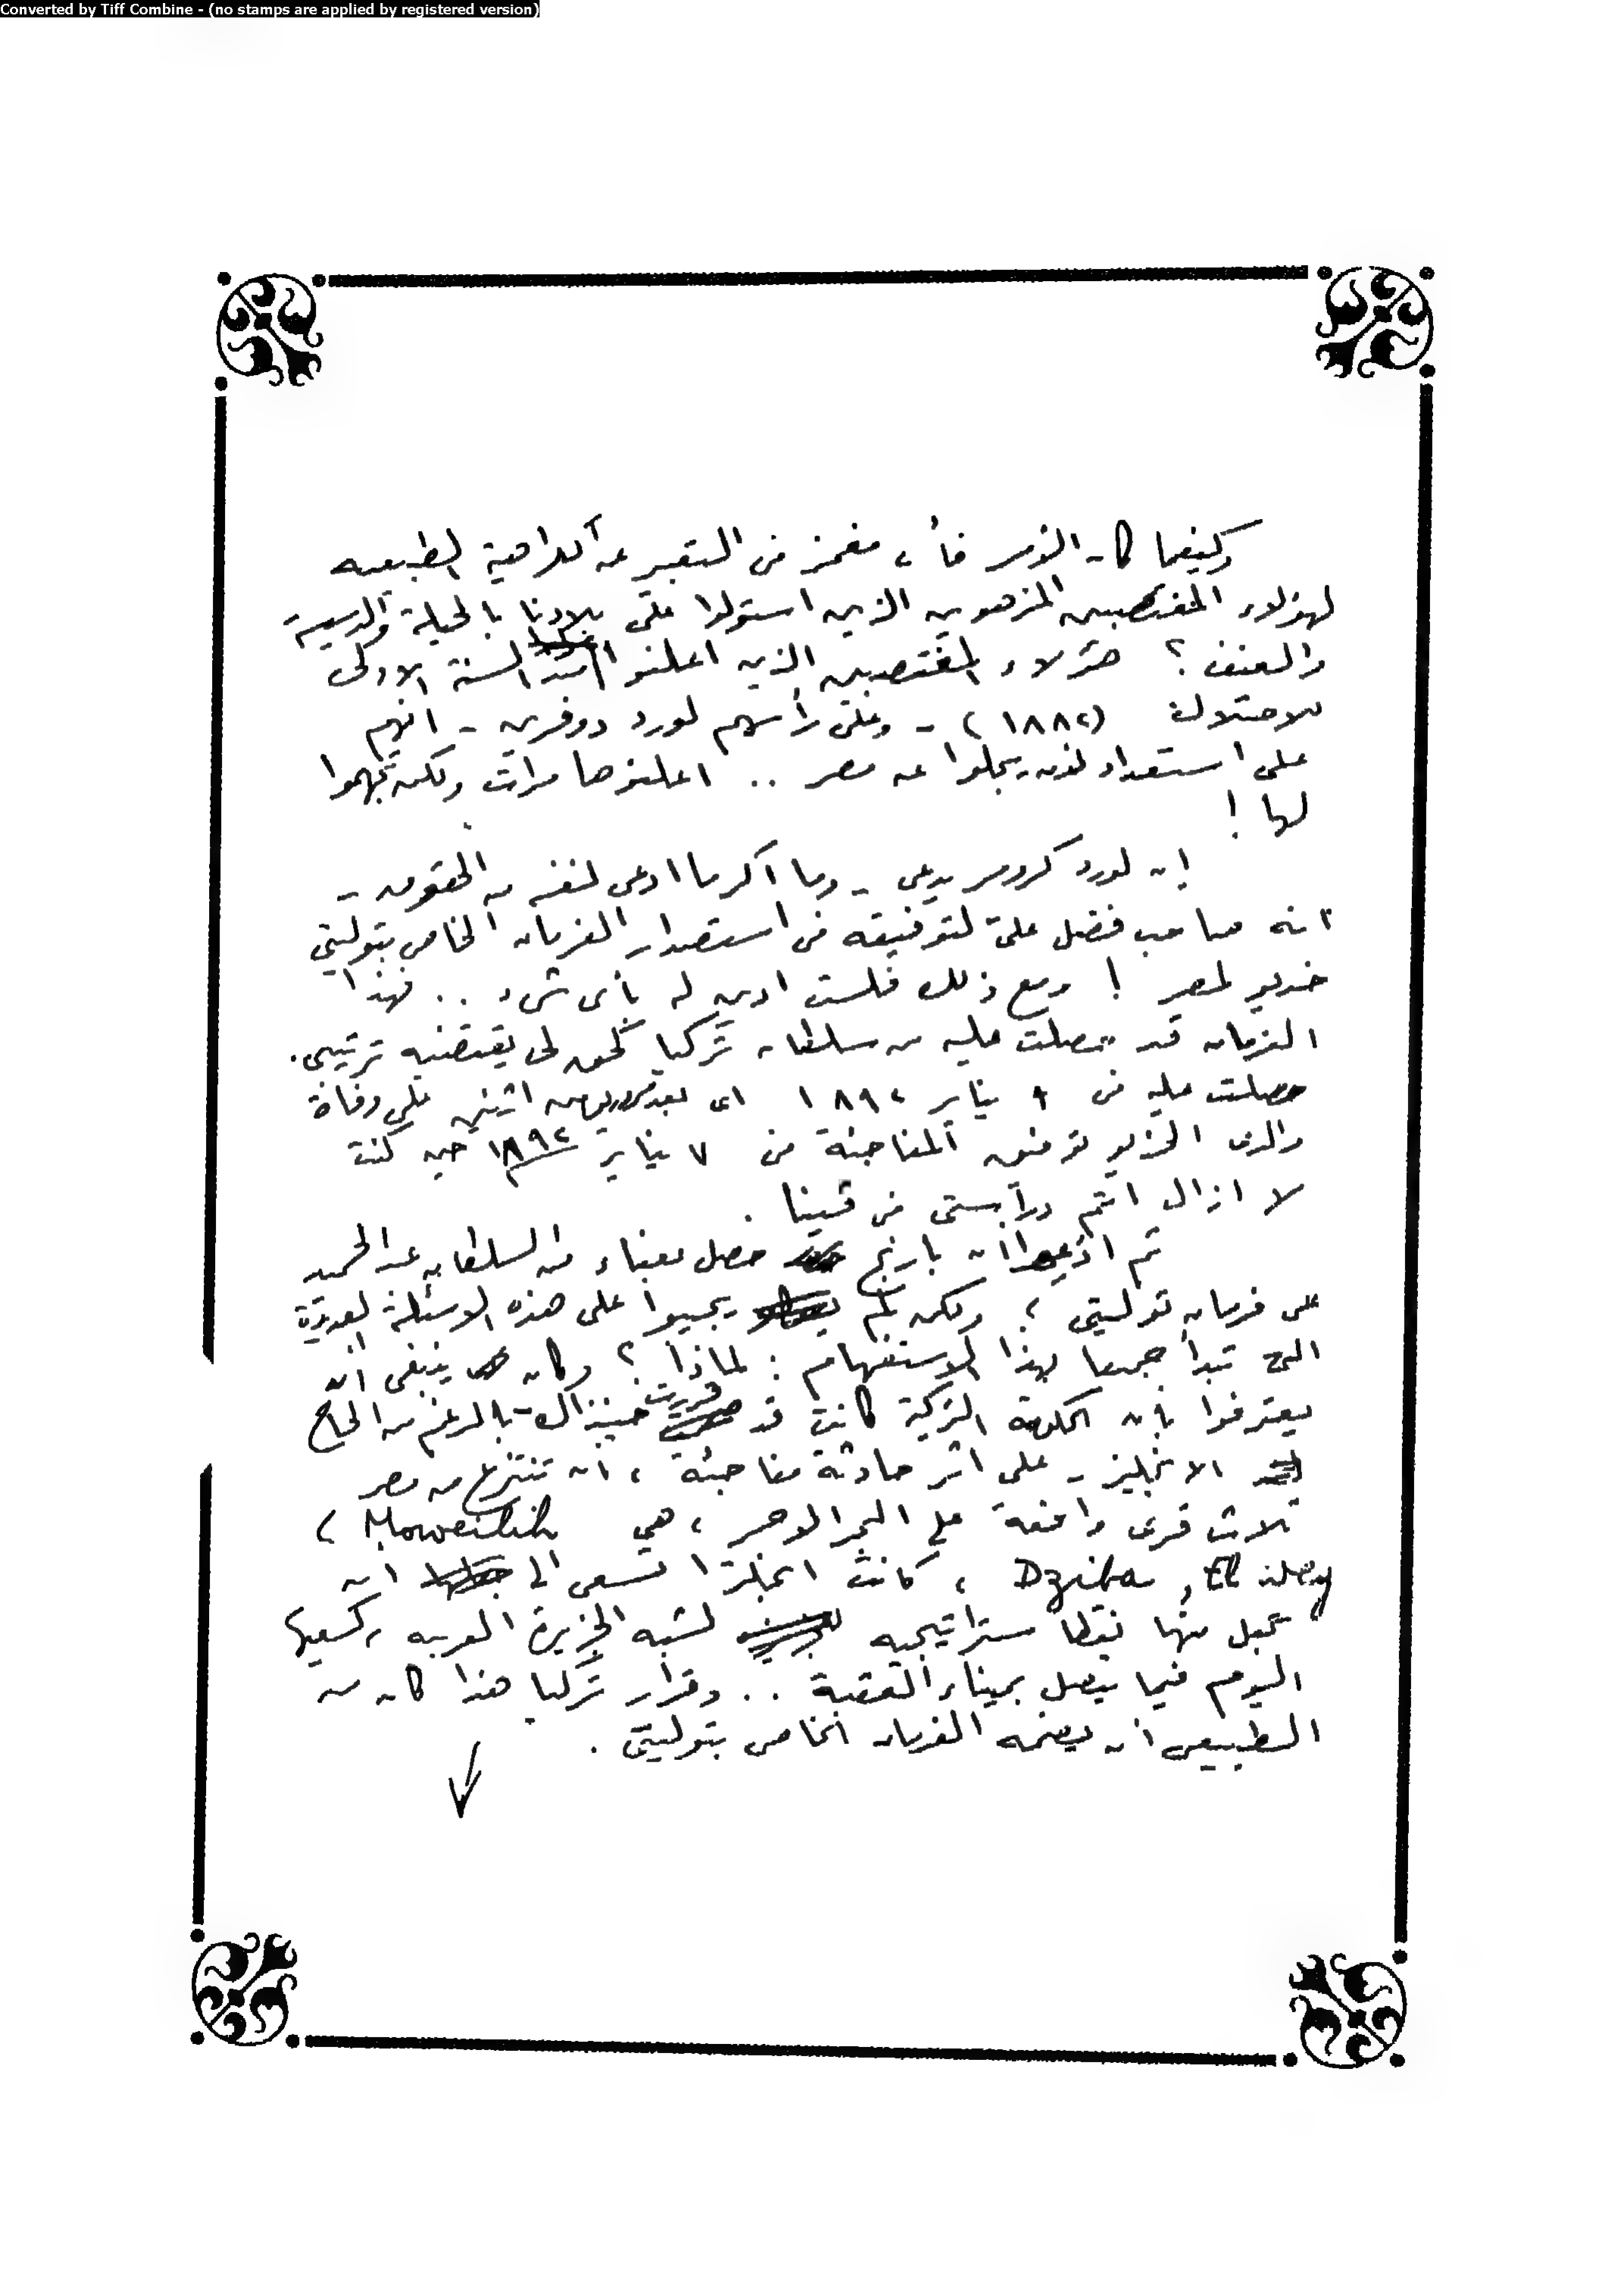 Converted by Tiff Combine - (no stamps are applied by registered version)
وكيفما كان الأمر فأى مغمز فى التعبير عن الكراهية الطبيعيه
لهؤلاء المغتصبين المزهوين الذين استولوا على بلادنا بالحيلة والدسيسة
والعنف ؟ هؤلاء المغتصبين الذين اعلنوا منذ السنة الاولى
للاحتلال (١٨٨٢) - وعلى رأسهم لورد دوفرين - انهم
على استعداد لأن يجلوا عن مصر .. اعلنوها مرات ولكن تجهموا
لها !
إن لورد كرومر يدعى - وما أكثر ما ادعى لنفسه من الحقوق -
انه صاحب فضل علىّ لتوفيقه فى استصدار الفرمان الخاص بتوليتى
خديو لمصر ! ومع ذلك فلست ادين له بأى شىء .. فهذا
الفرمان قد حصلت عليه من سلطان تركيا كحق لى يقتضيه ترتيبى .
حصلت عليه فى ٩ يناير ١٨٩٢ اى بعد يومين اثنين على وفاة
والدى الخديو توفيق المفاجئة فى ٧ يناير ١٨٩٢ حين كنت
لا ازال اتم دراستى فى ڤيينا .
ثم اذيع ان بارنج حصل بعناء من السلطان عبد الحميد
على فرمان توليتى ؛ ولكن لم يجيبوا على هذه الاسئلة العديدة
التى تبدأ جميعا بهذا الاستفهام : لماذا ؟ وكان ينبغى ان
يعترفوا بأن الحكومة التركية كانت قد قررت حينذاك - بالرغم من الحاح
الانجليز - على اثر حادثة مفاجئة ، ان تنتزع من مصر
ثلاث قرى واقعة على البحر الاحمر ، هى Moweilih ،
Dziba ، El ، كانت انجلترا تسعى الى ان
تجعل منها نقطا ستراتيجيه لشبه الجزيرة العربيه ، كسعيها
اليوم فيما يتصل بميناء العقبة .. وقرار تركيا هذا كان من
الطبيعى ان يضمه الفرمان الخاص بتوليتى .